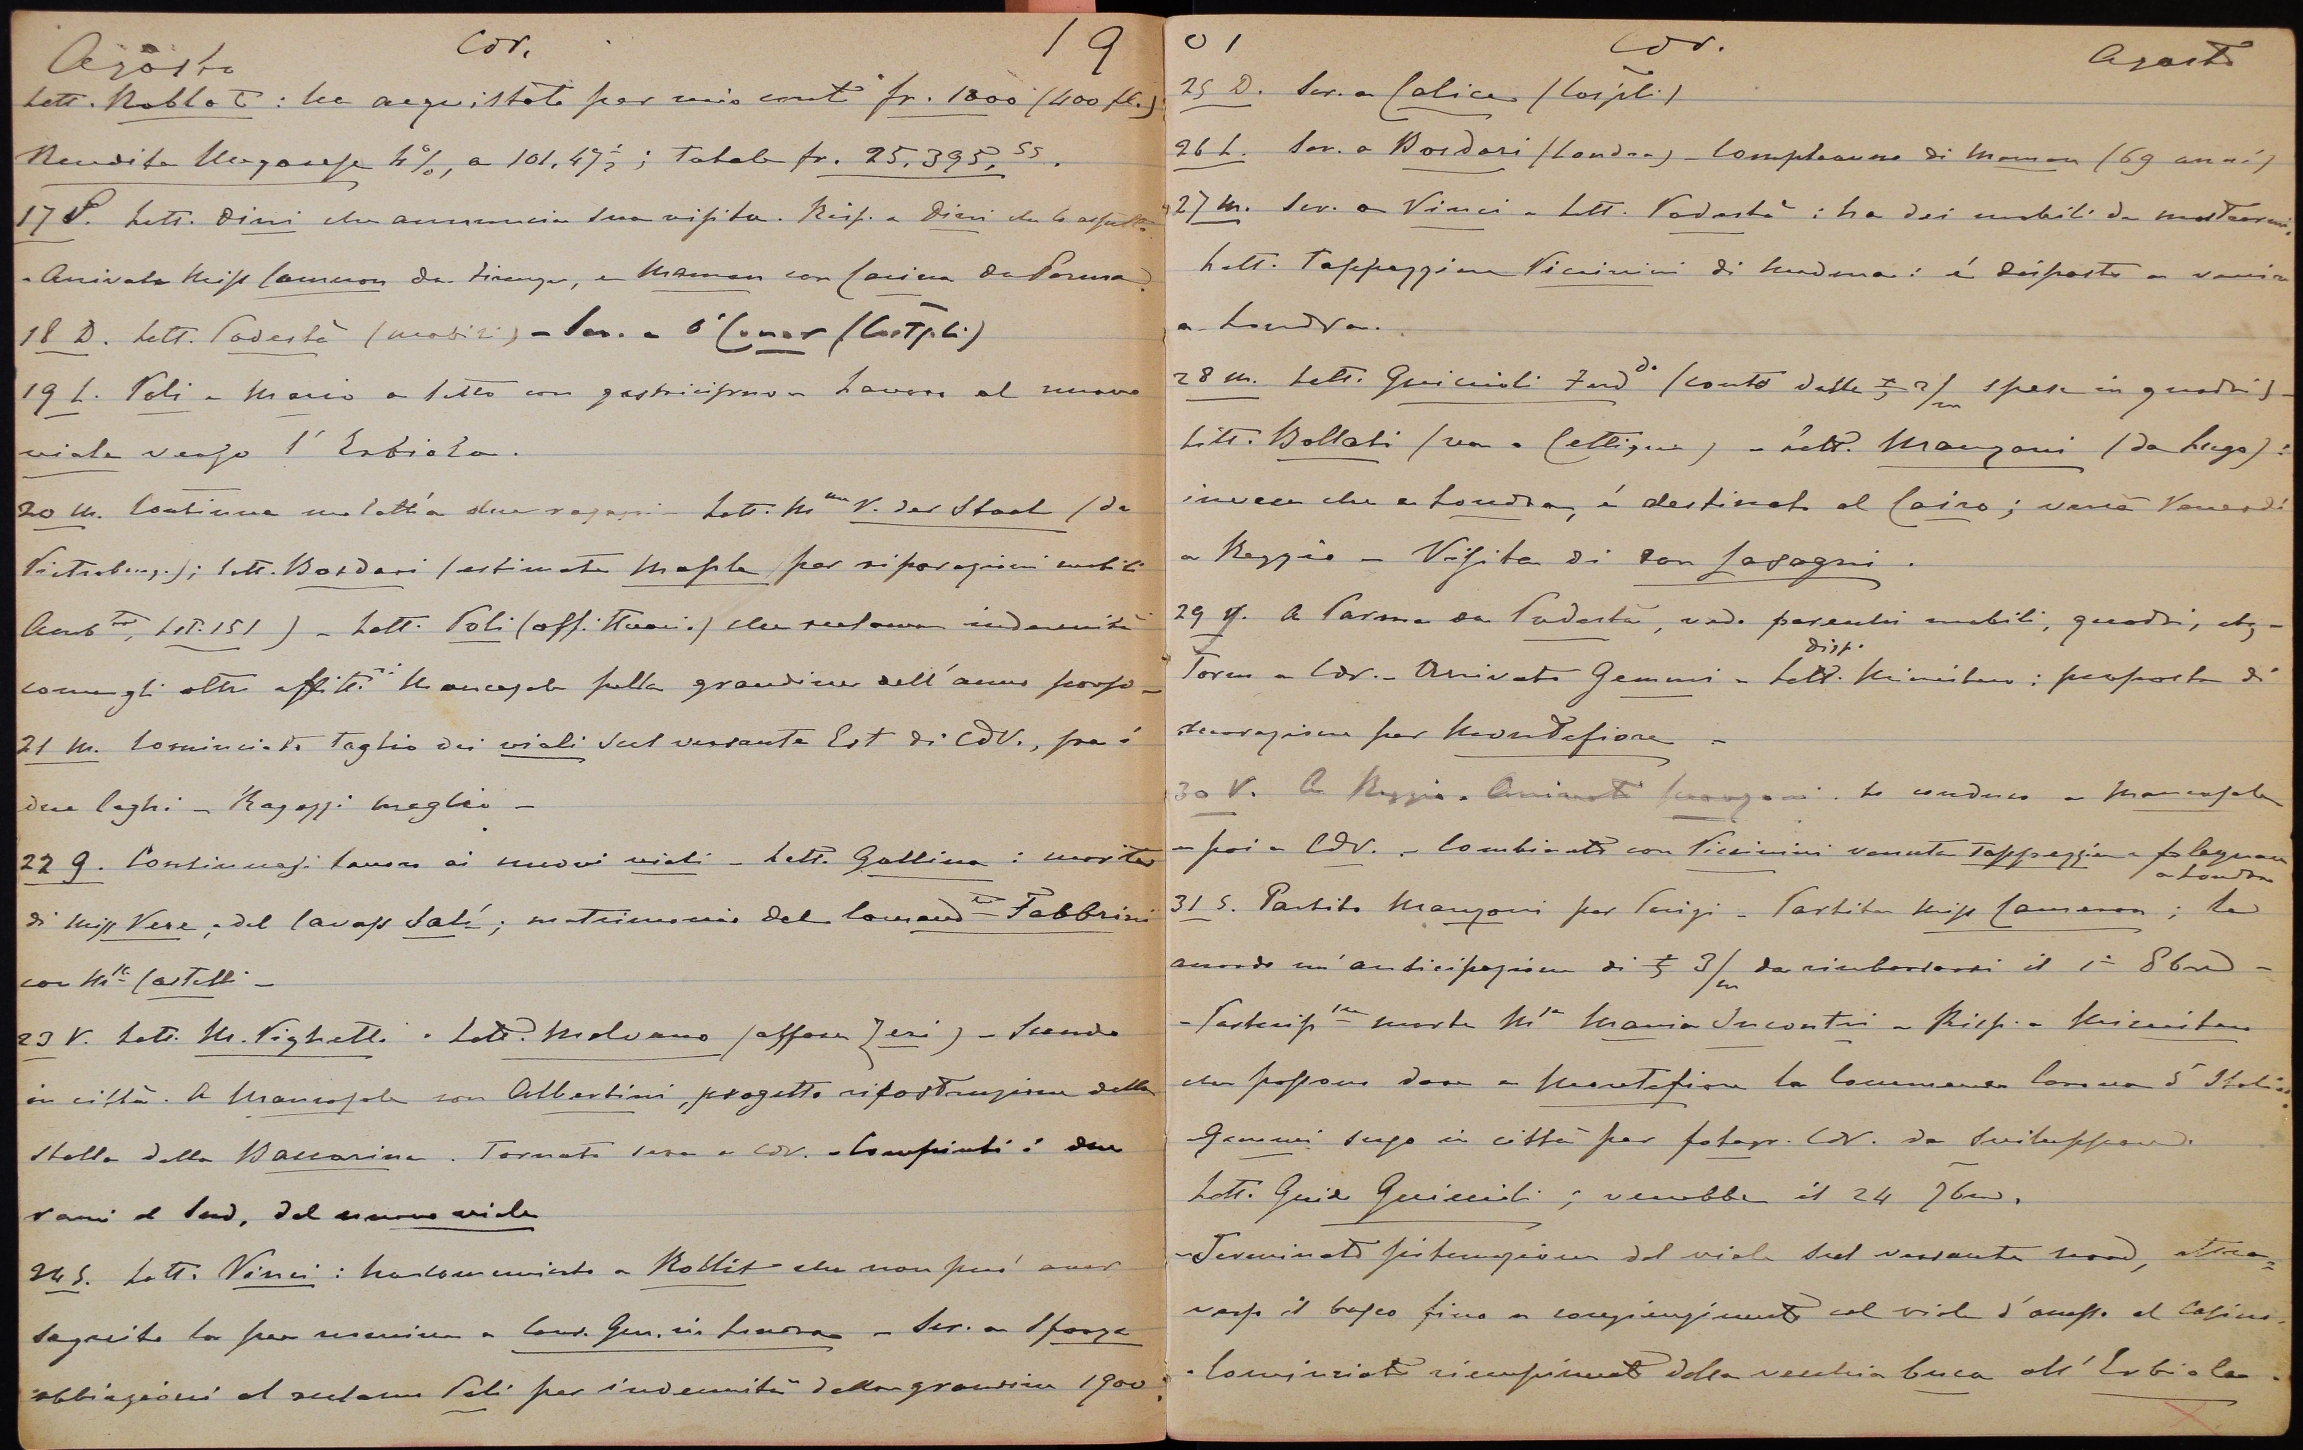 Agosto CdV. 19
Lett. Noblot : ha acquistato per mio conto fr. 1000 (400 fl.)
Rendita Ungarese 4%, a 101,47½ ; totale fr. 25,395,55.
17 S. Lett. Dini che annuncia sua visita. Risp. a Dini che lo aspetto
- Arrivata Miss Cameron da Firenze, e Maman con Carina da Parma.
18 D. Lett. Podestà (mobili) - Scr. a O'Conor (Costpli)
19 L. Poli e Mario a letto con gastricismo - Lavoro al nuovo
viale verso l'Erbiola.
20 M. Continua malattia due ragazzi - Lett. Mme V. der Staal (da
Pietroburgo); lett. Bordari (estimate Maple per riparazioni mobili
Ambta, Lst. 151) - Lett. Poli (affittuario) che reclama indennità
come gli altri affitti Mancasale pella grandine dell'anno scorso -
21 M. Cominciato taglio dei viali sul versante Est di CdV., fra i
due laghi - Ragazzi meglio -
22 G. Continuasi lavoro ai nuovi viali - Lett. Gallina : morte
di Miss Vere, e del Cavass Salì; matrimonio del Comandte Fabbrini
con Mlle Castelli -
23 V. Lett. M. Vighetti - Lett. Malvano (affare Zeri) - Scendo
in città. A Mancasale con Albertini, progetto ricostruzione della
stalla della Baccarina. Tornato sera a CdV. - Compiuti i due
rami al Sud, del nuovo viale
24 S. Lett. Vinci : ha comunicato a Rollit che non può aver
seguito la sua nomina a Cons. Gen. in Londra - Scr. a Sforza
obbiezioni al reclamo Poli per indennità della grandine 1900.
01 CdV. Agosto
25 D. Scr. a Calice (Cospli)
26 L. Scr. a Bordari (Londra) - Compleanno di Maman (69 anni)
27 M. Scr. a Vinci - Lett. Podestà : ha dei mobili da mostrarmi,
Lett. Tappezziere Vicinini di Modena : è disposto a venire
a Londra.
28 M. Lett. Guiccioli Ferddo (conto delle £ 2/m spese in quadri) -
Lett. Bollati (va a Cettigne) - Lett. Manzoni (da Lugo) :
invece che a Londra, è destinato al Cairo; verrà Venerdì
a Reggio - Visita di don Lasagni.
29 G. A Parma da Podestà, vedo parecchi mobili, quadri, etc -
Torno a CdV. - Arrivato Gemmi - disp. Lett. Ministero : proposta di
decorazione per Montefiore -
30 V. A Reggio. Arrivato Manzoni. Lo conduco a Mancasale
e poi a CdV. - Combinato con Vicinini venuta tappezziere e falegname
a Londra
31 S. Partito Manzoni per Parigi - Partita Miss Cameron ; le
accordo un'anticipazione di £ 3/m da rimborsarsi il 1º 8bre -
- Partecipne morte Mse Maria Incontri - Risp. a Ministero
che possono dare a Montefiore la Commenda Corona d'Italia.
Gemmi scese in città per fotogr. CdV. da sviluppare.
Lett. Guido Guiccioli ; verrebbe il 24 7bre.
- Terminata sistemazione del viale sul versante nord, attra-
verso il bosco fino a congiungimento col viale d'accesso al Casino.
- Cominciato riempimento della vecchia buca all'Erbiola.